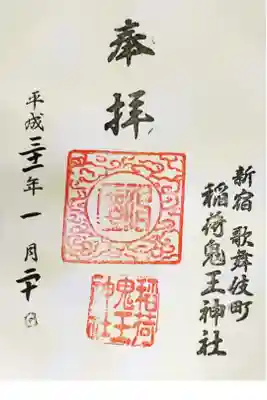 奉拝
新宿 歌舞伎町
稲荷鬼王神社
平成三十一年一月二十日
稲荷
鬼王
神社